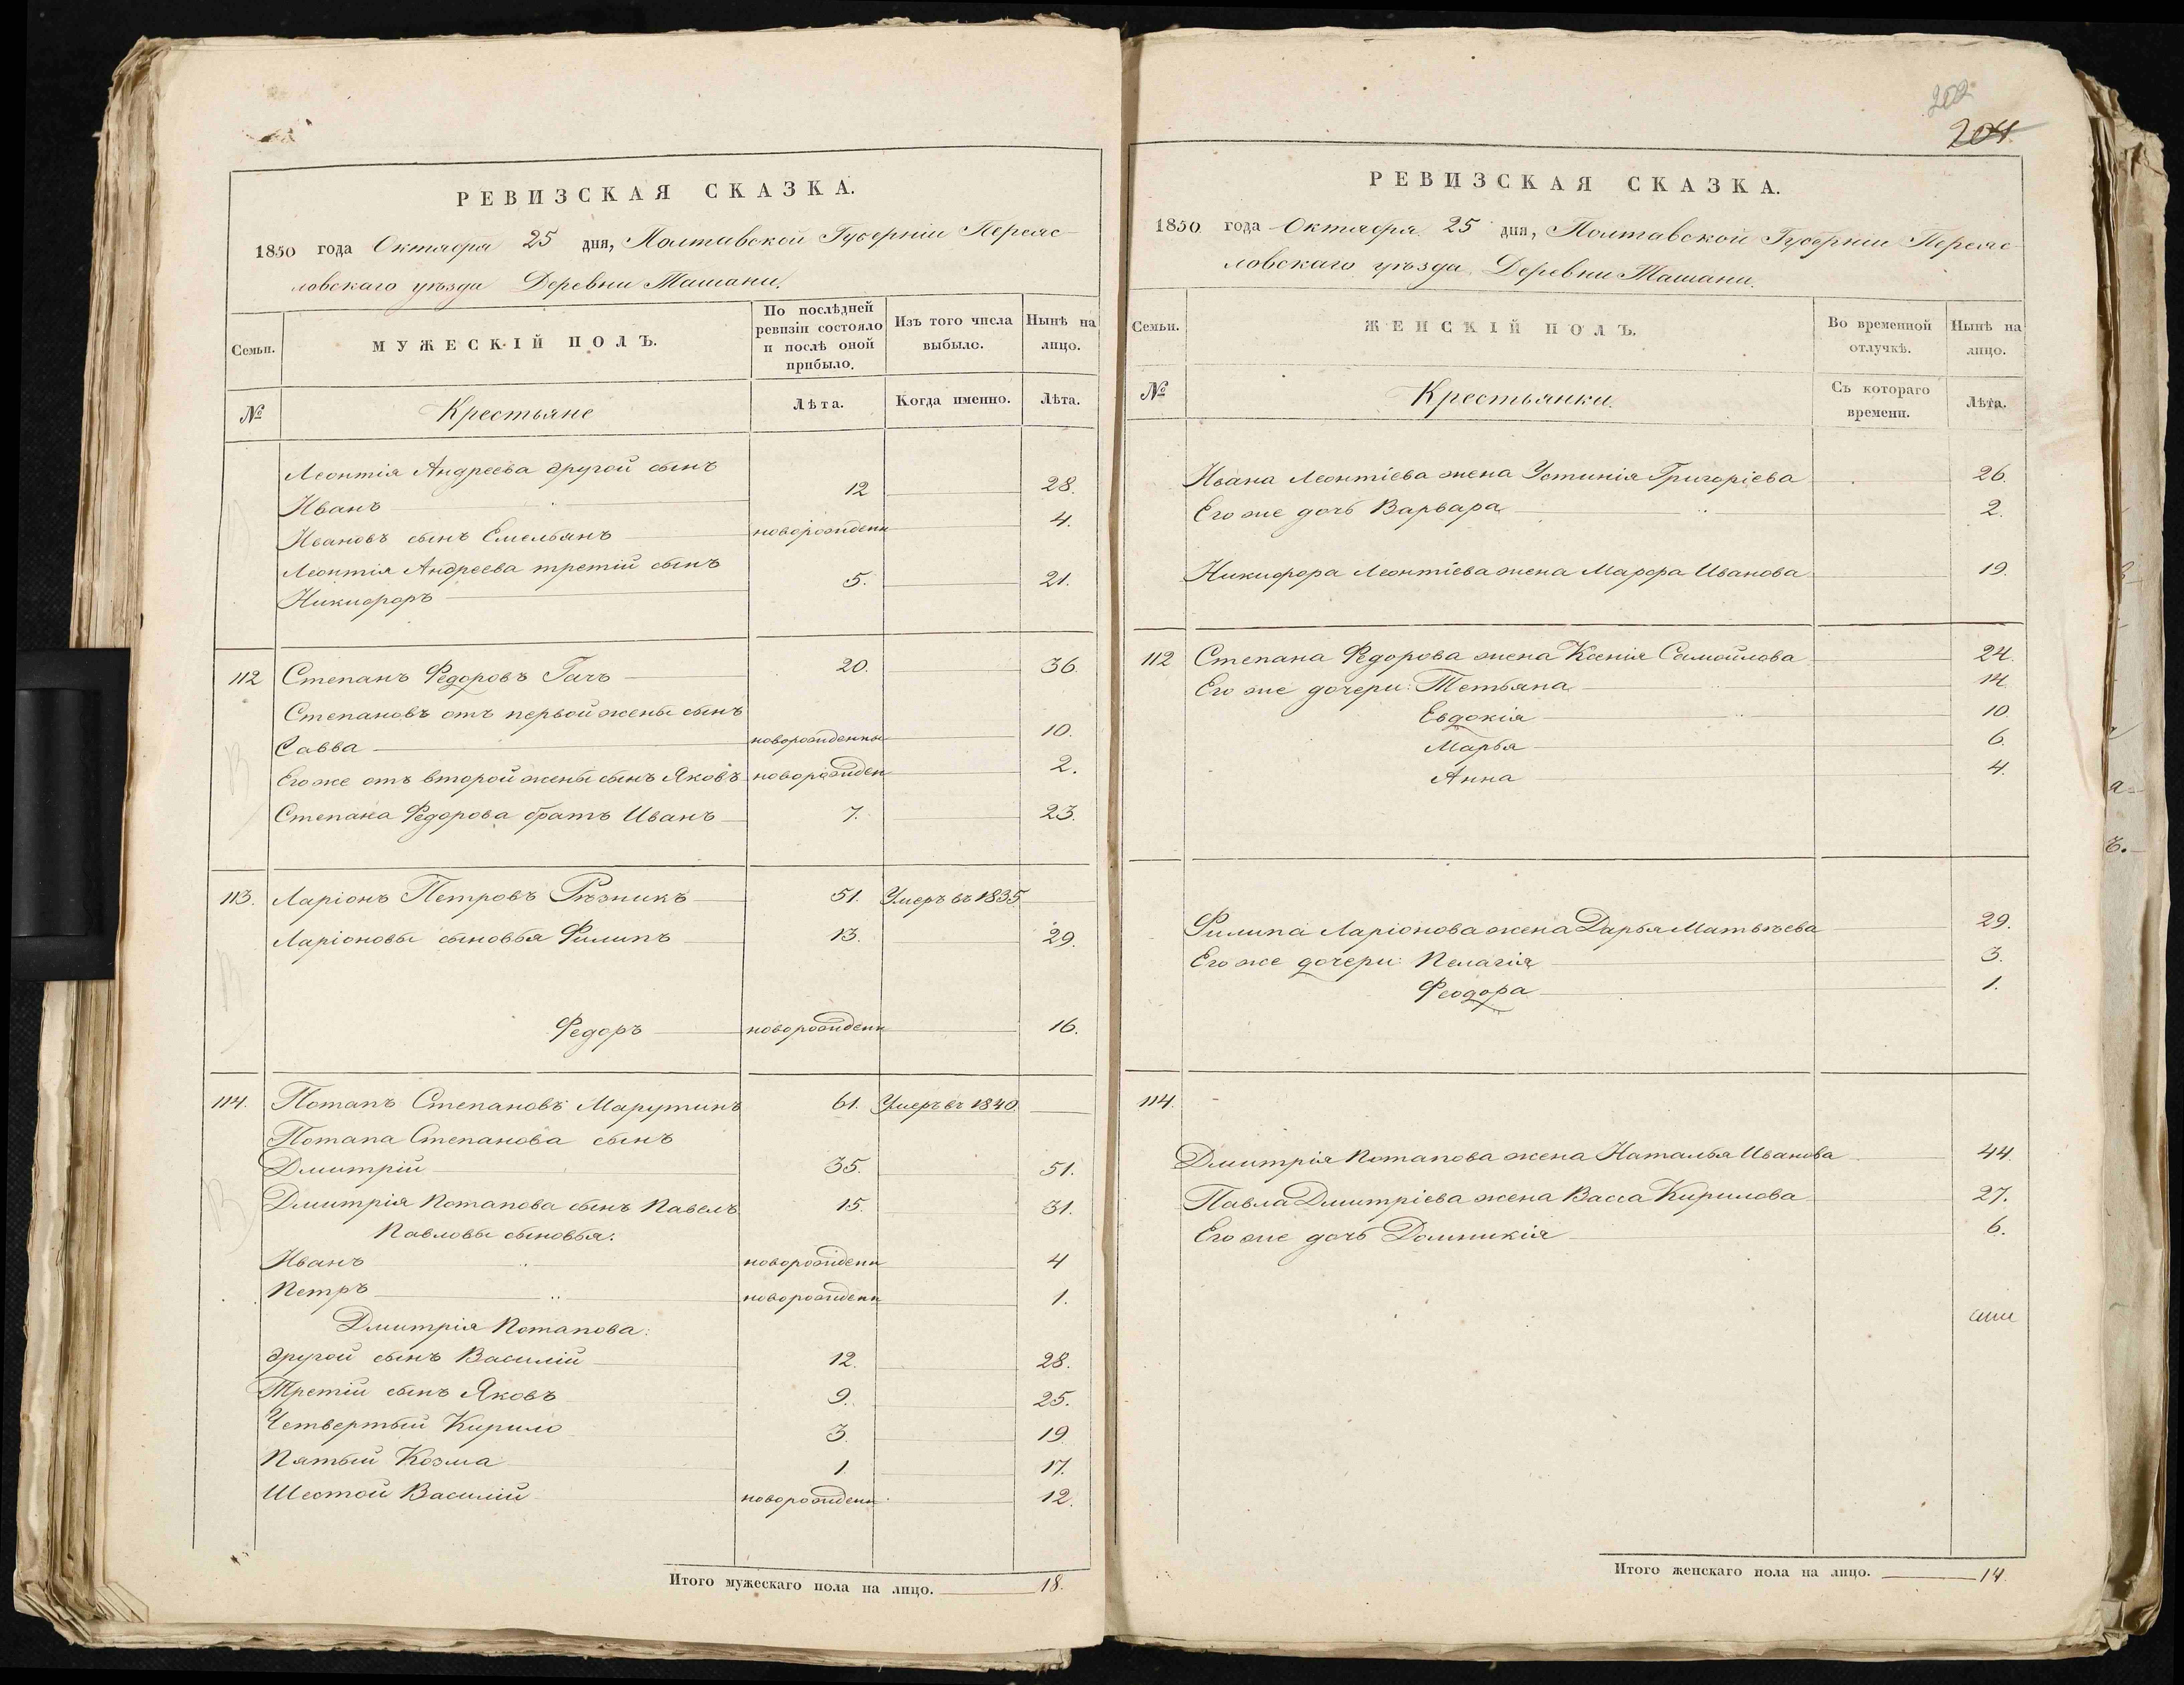 РЕВИЗСКАЯ СКАЗКА.
1850 года Октября 25 дня, Полтавской Губерніи Переяс
ловскаго уѣзда Деревни Ташани.
Семьи.
МУЖЕСКІЙ ПОЛЪ.
По послѣдней ревизіи состояло и послѣ оной прибыло.
Изъ того числа выбыло.
Нынѣ на лицо.
№
Крестьяне
Лѣта.
Когда именно.
Лѣта.
Леонтія Андреева другой сынъ
Иванъ 12 28.
Ивановъ сынъ Емельянъ новорожденн 4.
Леонтія Андреева третій сынъ
Никифоръ 5. 21.
112 Степанъ Федоровъ Гачъ 20. 36.
Степановъ отъ первой жены сынъ
Савва новорожденны 10.
Его же отъ второй жены сынъ Яковъ новорожден 2.
Степана Федорова братъ Иванъ 7. 23.
113. Ларіонъ Петровъ Рѣзникъ 51. Умеръ въ 1835
Ларіоновы сыновья Филипъ 13. 29.
Федоръ новорожденн 16.
114. Потапъ Степановъ Марутинъ 61. Умеръ въ 1840
Потапа Степанова сынъ
Дмитрій 35. 51.
Дмитрія Потапова сынъ Павелъ 15. 31.
Павловы сыновья:
Иванъ новорожденн 4
Петръ новорожденн 1.
Дмитрія Потапова:
другой сынъ Василій 12. 28.
Третій сынъ Яковъ 9. 25.
Четвертый Кирило 3. 19.
Пятый Козма 1. 17.
Шестой Василій новорожденн 12.
Итого мужескаго пола на лицо. 18.
202
204.
РЕВИЗСКАЯ СКАЗКА.
1850 года Октября 25 дня, Полтавской Губерніи Переяс
ловскаго уѣзда Деревни Ташани.
Семьи.
ЖЕНСКІЙ ПОЛЪ.
Во временной отлучкѣ.
Нынѣ на лицо.
№
Крестьянки.
Съ котораго времени.
Лѣта.
Ивана Леонтіева жена Устинія Григоріева 26.
Его же дочь Варвара 2.
Никифора Леонтіева жена Марфа Иванова 19.
112 Степана Федорова жена Ксенія Самойлова 24.
Его же дочери: Тетьяна 14.
Евдокія 10.
Марья 6.
Анна 4.
Филипа Ларіонова жена Дарья Матвѣева 29.
Его же дочери: Пелагія 3.
Феодора 1.
114.
Дмитрія Потапова жена Наталья Иванова 44.
Павла Дмитріева жена Васса Кирилова 27.
Его же дочь Домникія 6.
Итого женскаго пола на лицо. 14.